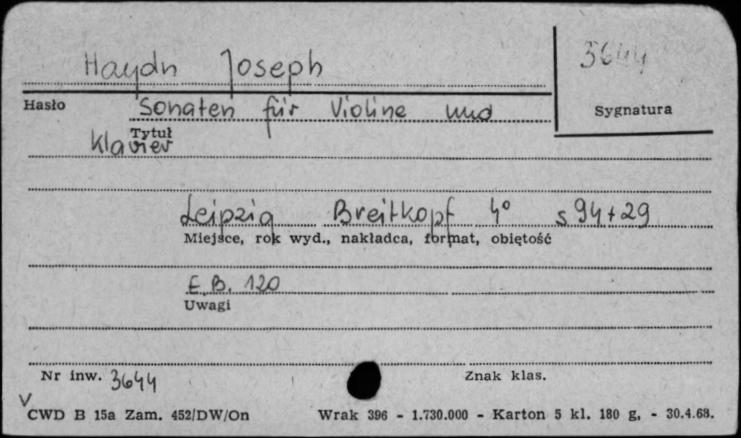 Haydn Joseph
3644
Hasło
Sonaten für Violine und
Sygnatura
Tytuł
Klavier
Leipzig Breitkopf 4° s 94+29
Miejsce, rok wyd., nakładca, format, objętość
E.B. 120
Uwagi
Nr inw. 3644
Znak klas.
V
CWD B 15a Zam. 452/DW/On Wrak 396 - 1.730.000 - Karton 5 kl. 180 g. - 30.4.68.